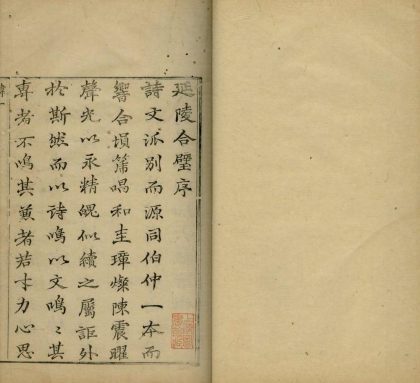 延陵合璧序
詩文派別而源同伯仲一本而
響合塤箎唱和圭璋燦陳震曜
聲光以永精魄似續之屬詎外
於斯然而以詩鳴以文鳴鳴其
專者不鳴其兼者若才力心思